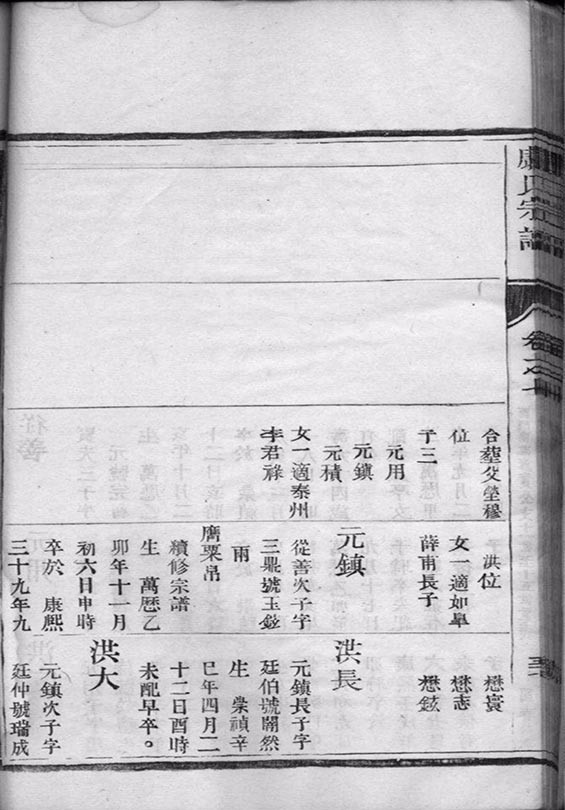 氏宗譜
卷之
合塟父塋穆
位
子三
元用
元鎮
元積
女一適泰州
李君祿
洪位
女一適如臯
薛甫長子
元鎮
從善次子字
三鼎號玉鉉
雨
廣粟帛
續修宗譜
生 萬歷乙
卯年十一月
初六日申時
卒於 康熈
三十九年九
懋寰
懋志
懋鉉
洪長
元鎮長子字
廷伯號闇然
生 崇禎辛
巳年四月二
十二日酉時
未配早卒。
洪大
元鎮次子字
廷仲號瑞成